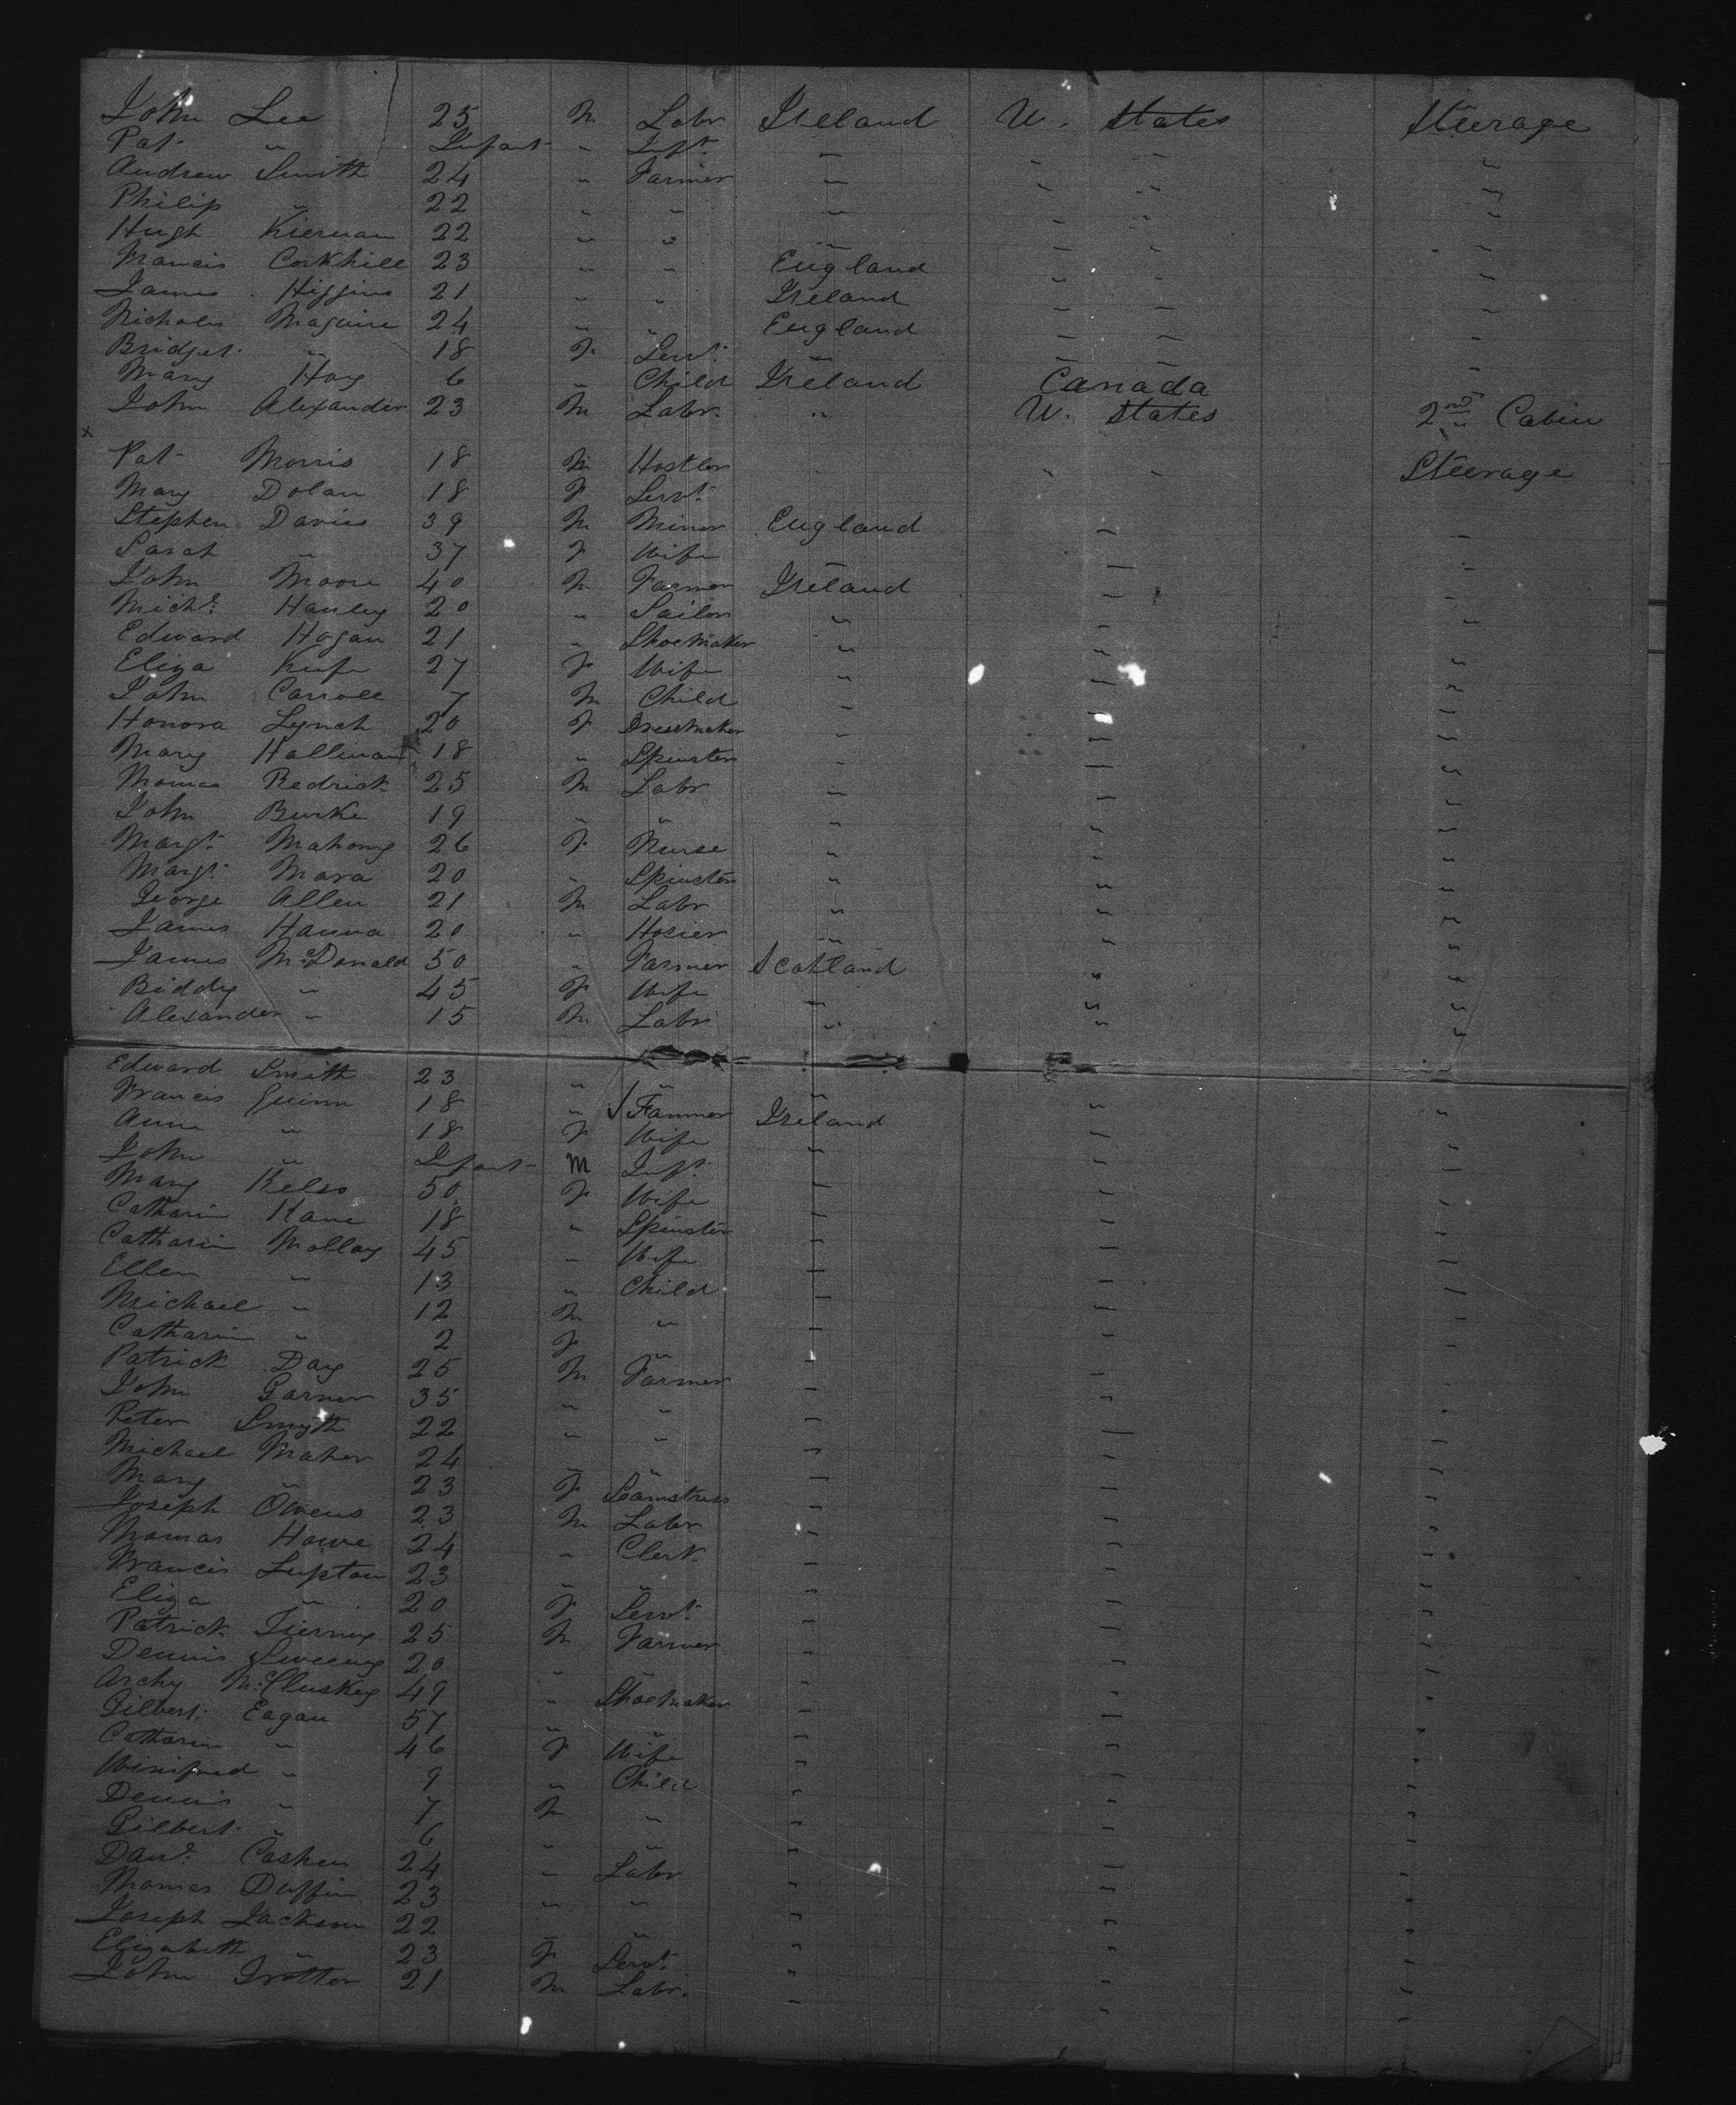 John Lee 25 M Labr Ireland U. States Steerage
Pat " Infant " Inft " " " "
Andrew Smith 24 " Farmer " " " "
Philip " 22 " " " " " "
Hugh Kiernan 22 " " " " " "
Francis Corkhill 23 " " England " " "
James Higgins 21 " " Ireland " " "
Nicholas Maguire 24 " " England " " "
Bridget " 18 F Servt " " " "
Mary Hoy 6 " Child Ireland Canada "
John Alexander 23 M Labr " U. States 2nd Cabin
x
Pat Morris 18 M Hostler " " " Steerage
Mary Dolan 18 F Servt
Stephen Davies 39 M Miner England " "
Sarah " 37 F Wife " "
John Moore 40 M Farmer Ireland " "
Michl Hanley 20 " Sailor " " "
Edward Hogan 21 " Shoemaker " " "
Eliza Keefe 27 F Wife " " "
John Carroll 7 M Child " " "
Honora Lynch 20 F Dressmaker " " "
Mary Hallinan 18 " Spinster " " "
Thomas Redrick 25 M Labr " " "
John Burke 19 " " " " "
Margt Mahony 26 F Nurse " " "
Margt Mara 20 " Spinster " " "
George Allen 21 M Labr " " "
James Hanna 20 " Hosier " " "
James McDonald 50 " Farmer Scotland " "
Biddy " 45 F Wife " " "
Alexander " 15 M Labr " " "
Edward Smith 23 " " "
Francis Quinn 18 " Farmer Ireland " "
Anne " 18 F Wife " " "
John " Infant M Inft " " "
Mary Kelso 50 F Wife " " "
Catharin Kane 18 " Spinster " " "
Catharin Molloy 45 " Wife " " "
Ellen " 13 " Child " " "
Michael " 12 M " " " "
Catharin " 2 F " " " "
Patrick Day 25 M Farmer " " "
John Garner 35 " " " " "
Peter Smyth 22 " " " " "
Michael Maher 24 " " " " "
Mary " 23 F Seamstress " " "
Joseph Owens 23 M Labr " " "
Thomas Howe 24 " Clerk " " "
Francis Lupton 23 " " " " "
Eliza " 20 F Servt " " "
Patrick Tierney 25 M Farmer " " "
Dennis Sweeney 20 " " " " "
Archy McCluskey 49 " Shoemaker " " "
Gilbert Eagan 57 " " " " "
Catharin " 46 F Wife " " "
Winifred " 9 " Child " " "
Dennis " 7 M " " " "
Gilbert " 6 " " " " "
Danl Cashen 24 " Labr " " "
Thomas Duffin 23 " " " " "
Joseph Jackson 22 " " " " "
Elizabeth " 23 F Servt " " "
John Trotter 21 M Labr. " " "